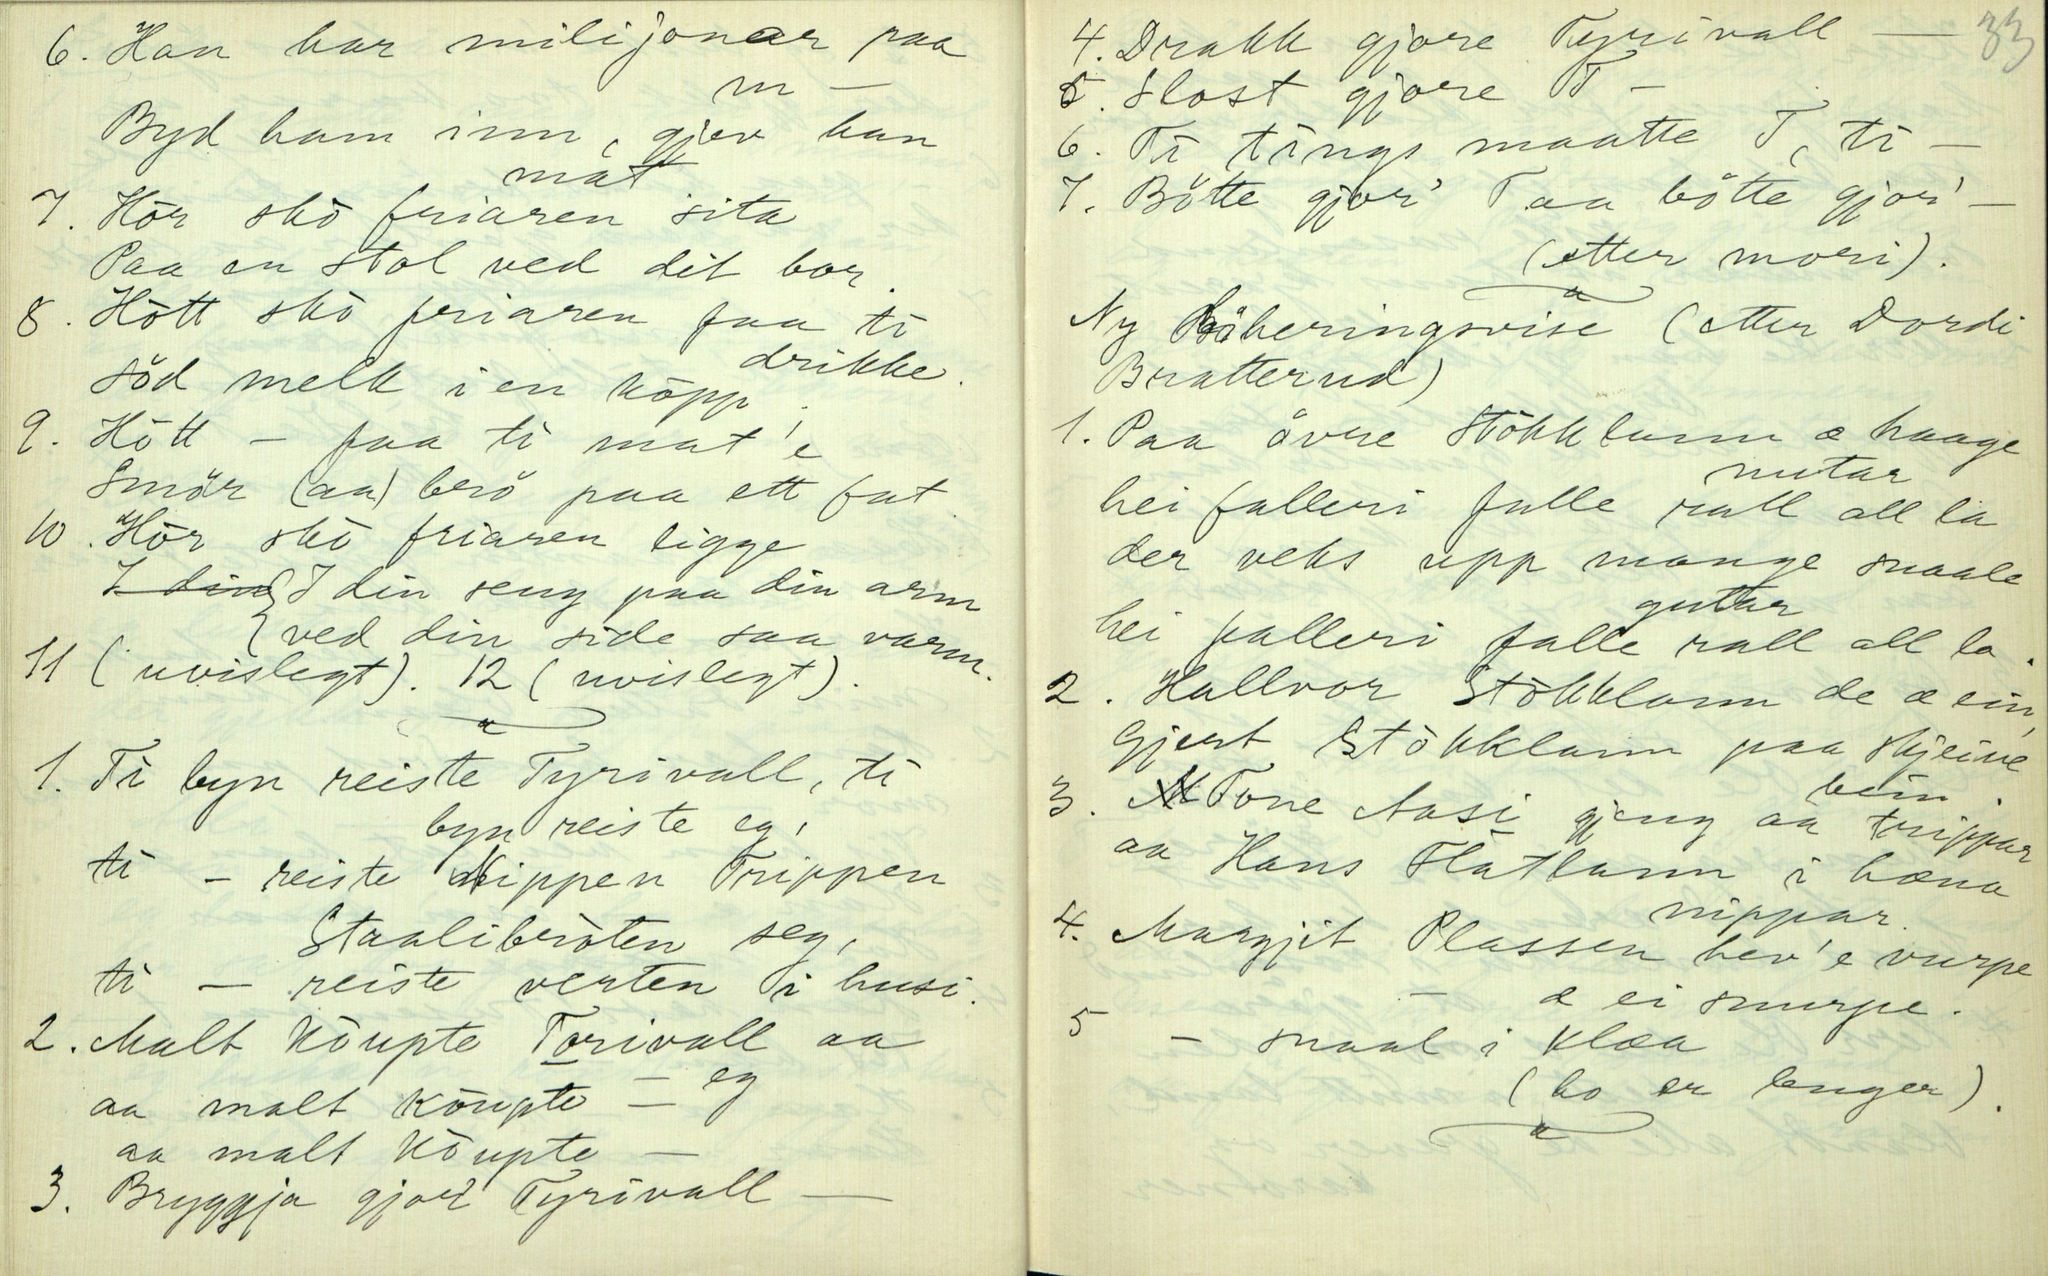 6. Han har milijonar paa
m —
Byd ham inn, gjev han
mat
7. Hör skò friaren sita
Paa en stol ved dit bor.
8. Hött skò friaren faa ti
drikke.
söd melk i en köpp'.
9. Hött — faa ti mat'e
Smör (aa) brö paa ett fat.
10. Hör skò friaren ligge
I din seng paa din arm
ved din side saa varm.
11 (uvislegt). 12 (uvislegt).
1. Ti byn reiste Tyrivall, ti
byn reiste eg,
ti — reiste Nippen Trippen
Staalibròten seg,
ti — reiste verten i husi.
2. Malt kòupte Torivall aa
aa malt kòupte — eg
aa malt kòupte —
3. Bryggja gjord Tyrivall —
33
4. Drakk gjore Tyrivall —
5. Slost gjore T —
6. Ti tings maatte T, ti —
7. Bötte gjor' T aa bötte gjor' —
(etter mori).
Ny Böheringsvise (etter Dordi
Bratterud)
1. Paa övre Stökklann æ haage
nutar
hei falleri falle rall all la
der veks upp mange snaale
gutar
hei falleri falle rall all la.
2. Hallvor Stökklann de æ ein,
Gjert Stökklann paa skjeive
bein.
3. Tone Aasi gjeng aa trippar
aa Hans Flatlann i hæna
nippar.
4. Margjit Plassen hev'e vurpe
— æ ei snurpe.
5 — snaal i klæa
(ho er lenger).